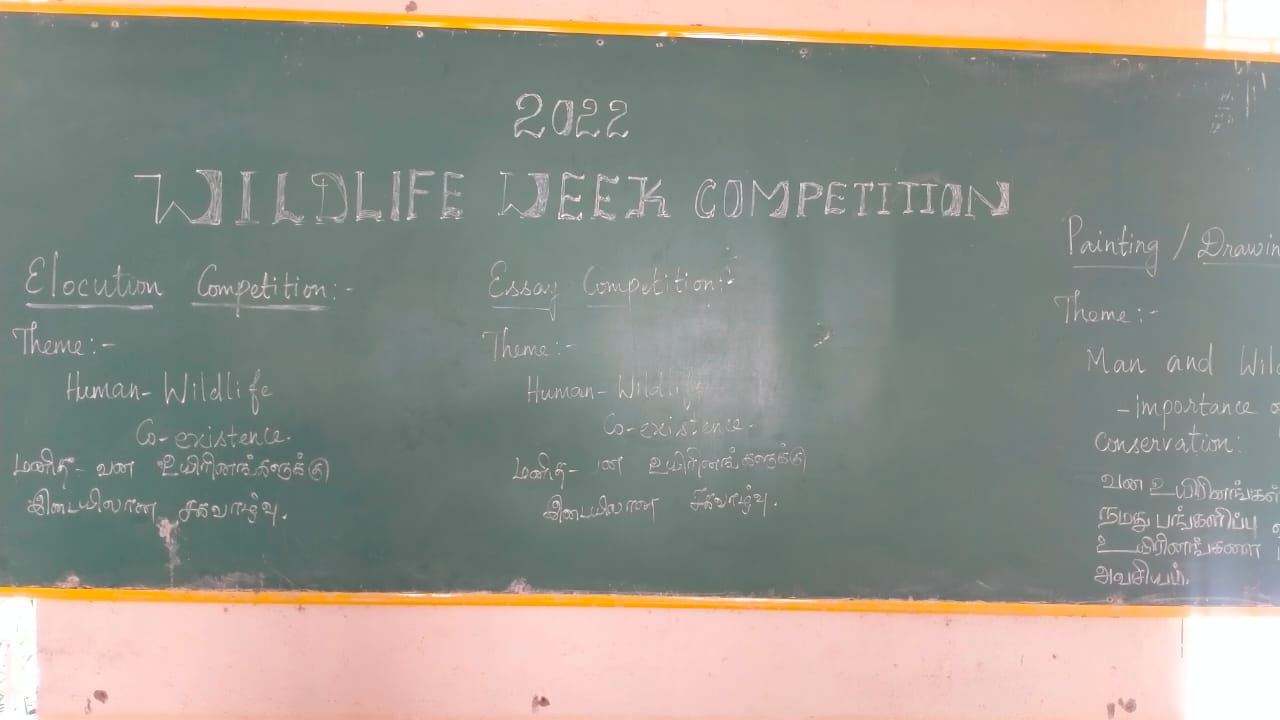 2022
WILDLIFE WEEK COMPETITION
Elocution Competition:-
Theme:-
Human-Wildlife
Co-existence.
மனித-வன உயிரினங்களுக்கு
இடையிலான சகவாழ்வு.
Essay Competition:-
Theme:-
Human-Wildlife
Co-existence.
மனித- ன உயிரினங்களுக்கு
இடையிலான சகவாழ்வு.
Painting / Drawin
Theme:-
Man and Wil
-importance o
Conservation:
வன உயிரினங்கள்
நமது பங்களிப்பு
உயிரினங்களை
அவசியம்.